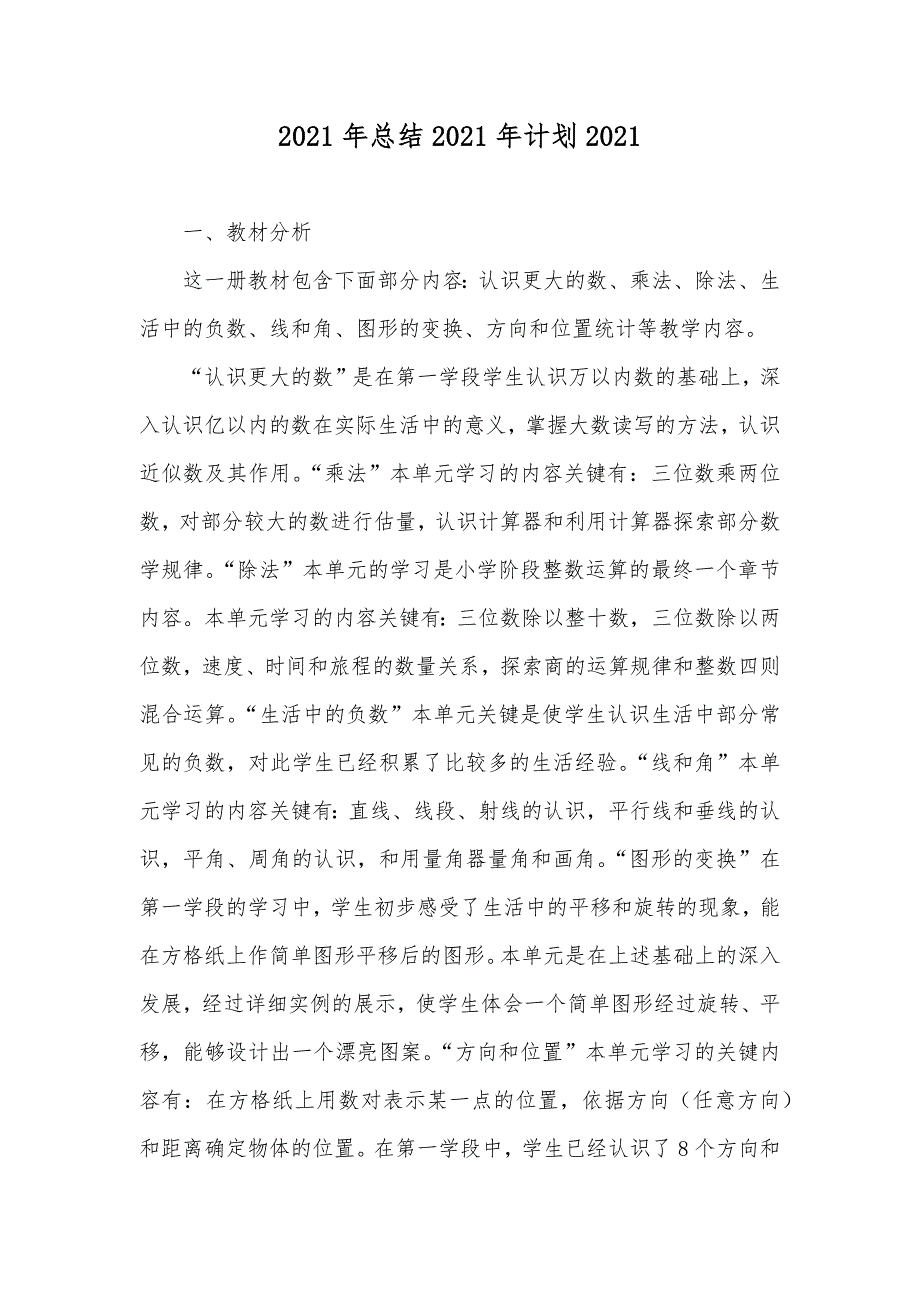 2021 年总结 2021 年计划 2021
一、教材分析
这一册教材包含下面部分内容：认识更大的数、乘法、除法、生
活中的负数、线和角、图形的变换、方向和位置统计等教学内容。
“认识更大的数”是在第一学段学生认识万以内数的基础上，深
入认识亿以内的数在实际生活中的意义，掌握大数读写的方法，认识
近似数及其作用。“乘法”本单元学习的内容关键有：三位数乘两位
数，对部分较大的数进行估量，认识计算器和利用计算器探索部分数
学规律。“除法”本单元的学习是小学阶段整数运算的最终一个章节
内容。本单元学习的内容关键有：三位数除以整十数，三位数除以两
位数，速度、时间和旅程的数量关系，探索商的运算规律和整数四则
混合运算。“生活中的负数”本单元关键是使学生认识生活中部分常
见的负数，对此学生已经积累了比较多的生活经验。“线和角”本单
元学习的内容关键有：直线、线段、射线的认识，平行线和垂线的认
识，平角、周角的认识，和用量角器量角和画角。“图形的变换”在
第一学段的学习中，学生初步感受了生活中的平移和旋转的现象，能
在方格纸上作简单图形平移后的图形。本单元是在上述基础上的深入
发展，经过详细实例的展示，使学生体会一个简单图形经过旋转、平
移，能够设计出一个漂亮图案。“方向和位置”本单元学习的关键内
容有：在方格纸上用数对表示某一点的位置，依据方向（任意方向）
和距离确定物体的位置。在第一学段中，学生已经认识了 8 个方向和